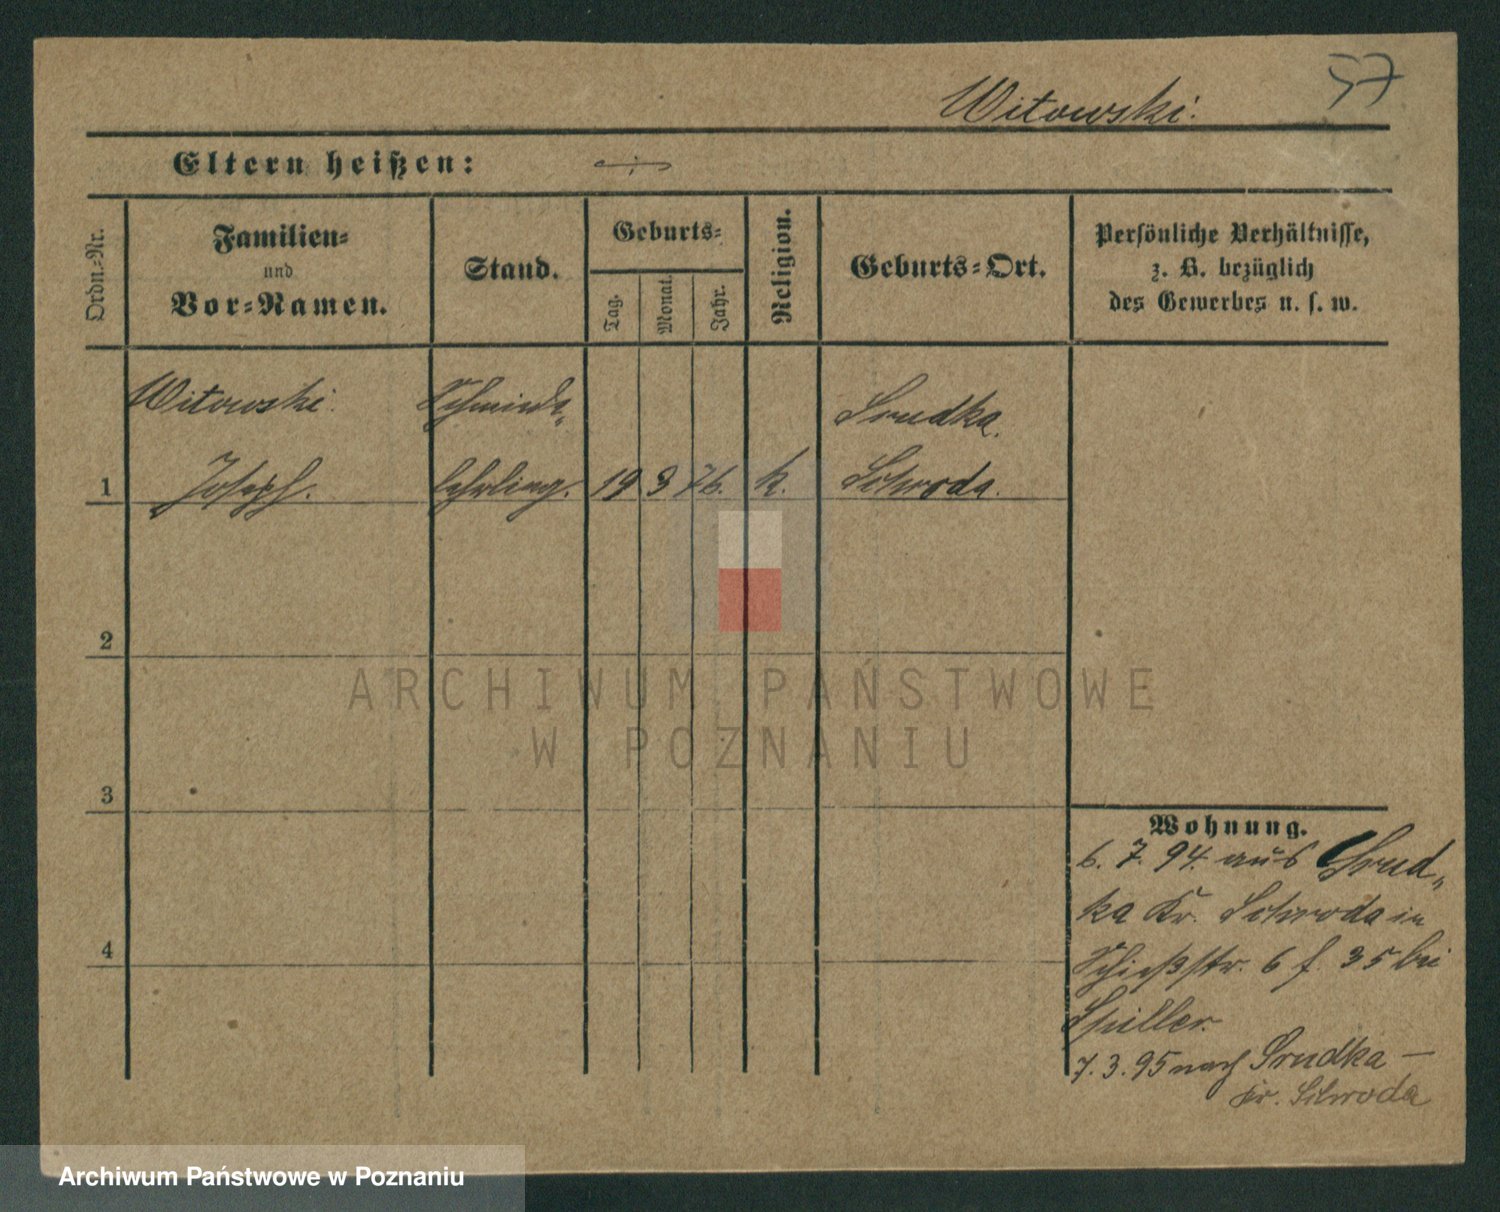 57
Witowski.
Eltern heißen: -:-
Ordn.-Nr.
Familien-
und
Vor-Namen.
Stand.
Geburts-
Tag.
Monat.
Jahr.
Religion.
Geburts-Ort.
Persönliche Verhältnisse,
z. B. bezüglich
des Gewerbes u. s. w.
Witowski. Schmiede- Srudka.
1 Joseph. lehrling. 19 3 76. k. Schroda.
2
3
4
Wohnung.
6. 7. 94. aus Srud-
ka Kr. Schroda in
Schießstr. 6 f. 35 bei
Spiller.
7. 3. 95 nach Srudka —
Kr. Schroda
ARCHIWUM PAŃSTWOWE
W POZNANIU
Archiwum Państwowe w Poznaniu